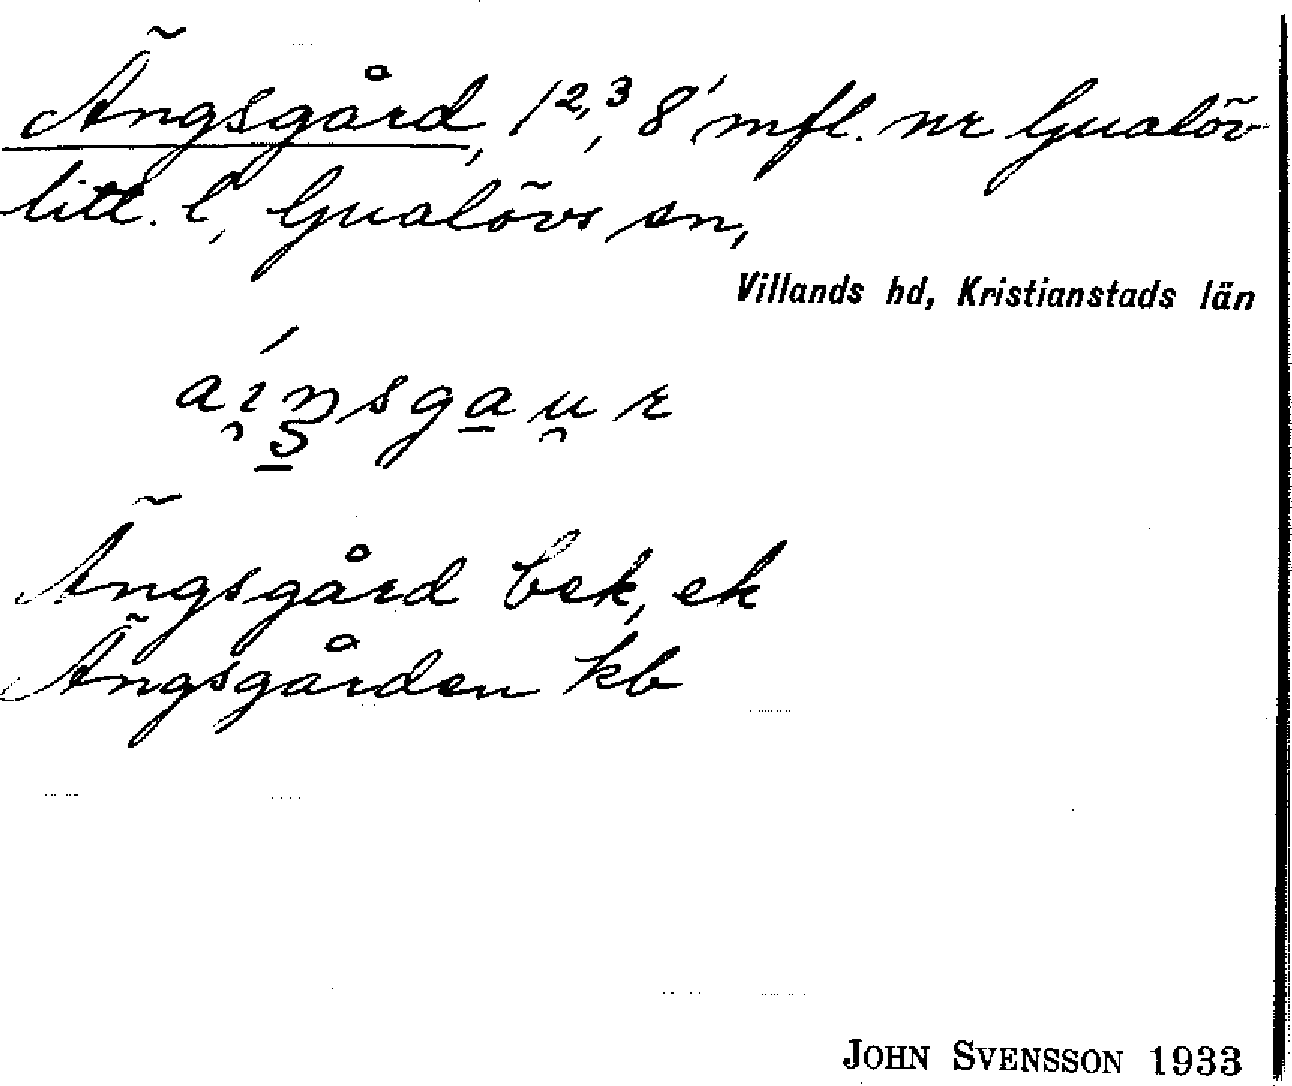 Ängsgård, 1²,³, 8' mfl. nr Gualöv
litt. l, Gualövs sn,
Villands hd, Kristianstads län
Ängsgård bek, ek
Ängsgården kb
JOHN SVENSSON 1933